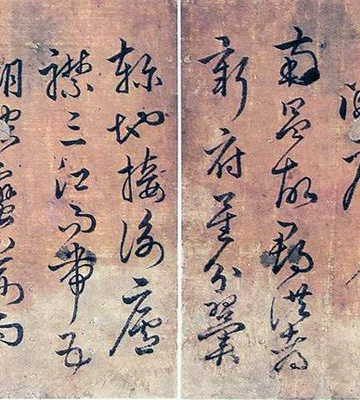 南昌故郡洪都
新府星分翼
軫地接衡廬
襟三江而帶五
湖控蠻荊而